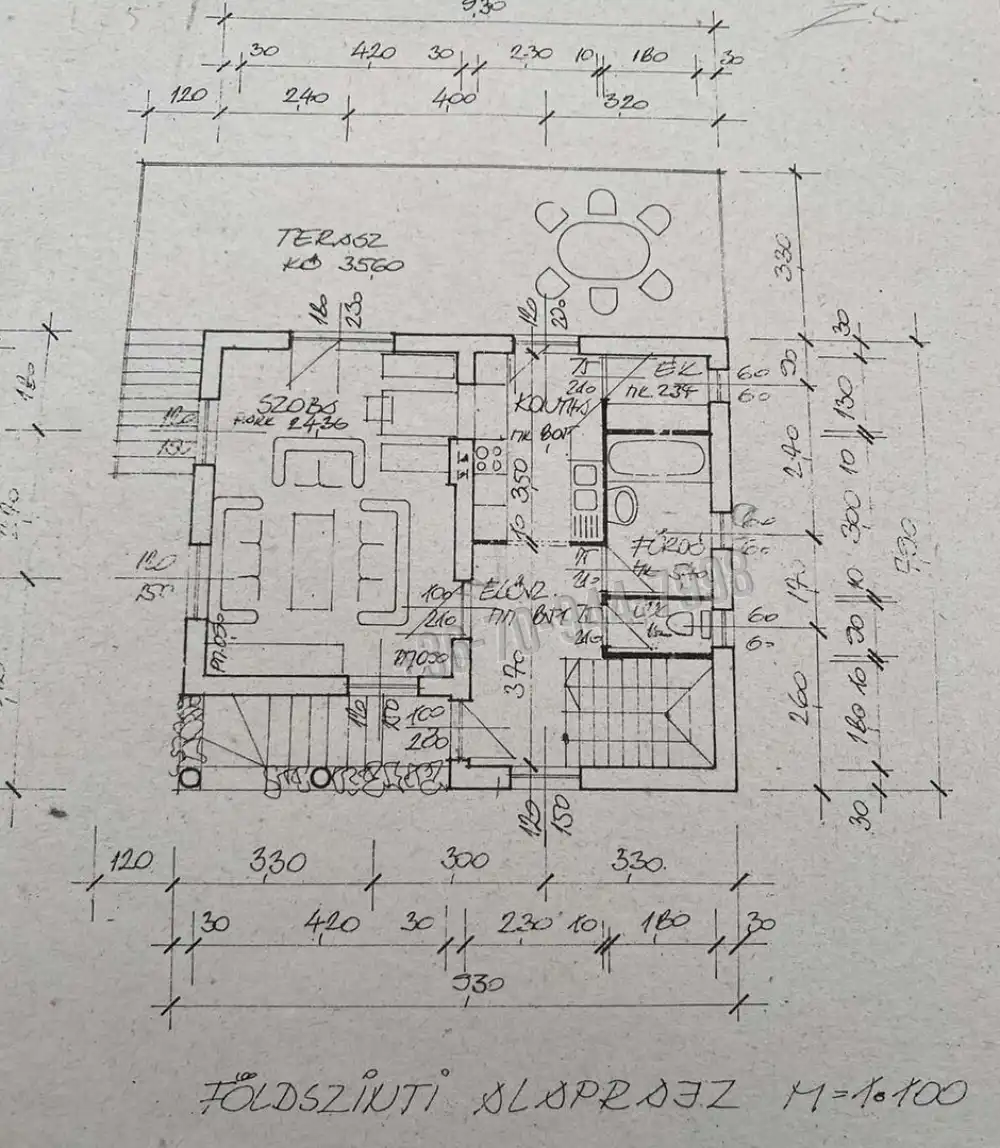 930
30 420 30 230 10 180 30
120 240 400 320
TERASZ
KŐ 35,60
180 230
120 200
330
30
90
130
240
10
300
790
170
10
90
260
10
180
30
180
SZOBA
PARK 24,36
120
150
75
210
ÉK
MK 2,34
60
60
KONYHA
MK 8,05
350
10
120
150
100
210
ELŐSZ.
75
210
FÜRDŐ
60
60
75
210
60
60
PM 090
PM 090
370
120 150
100
200
120 150
120 330 300 330
30 420 30 230 10 180 30
930
FÖLDSZINTI ALAPRAJZ M=1:100